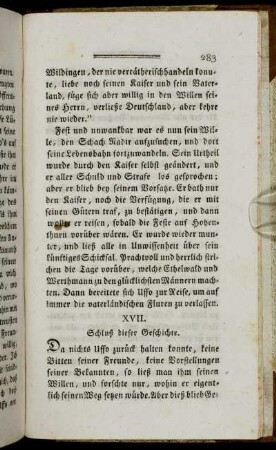 283
Wildingen, der nie verrätherisch handeln konn-
te, liebe noch seinen Kaiser und sein Vater-
land, füge sich aber willig in den Willen sei-
nes Herrn, verließe Deutschland, aber kehre
nie wieder."
Fest und unwankbar war es nun sein Wil-
le, den Schach Nadir aufzusuchen, und dort
seine Lebensbahn fortzuwandeln. Sein Urtheil
wurde durch den Kaiser selbst geändert, und
er aller Schuld und Strafe los gesprochen;
aber er blieb bey seinem Vorsatze. Er bath nur
den Kaiser, noch die Verfügung, die er mit
seinen Gütern traf, zu bestätigen, und dann
wollte er reisen, sobald die Feste auf Hohen-
thurn vorüber wären. Er wurde wieder mun-
ter, und ließ alle in Unwissenheit über sein
künftiges Schicksal. Prachtvoll und herrlich stri-
chen die Tage vorüber, welche Ethelwald und
Werthmann zu den glücklichsten Männern mach-
ten. Dann bereitete sich Uffo zur Reise, um auf
immer die vaterländischen Fluren zu verlassen.
XVII.
Schluß dieser Geschichte.
Da nichts Uffo zurück halten konnte, keine
Bitten seiner Freunde, keine Vorstellungen
seiner Bekannten, so ließ man ihm seinen
Willen, und forschte nur, wohin er eigent-
lich seinen Weg setzen würde. Aber dieß blieb Ge-